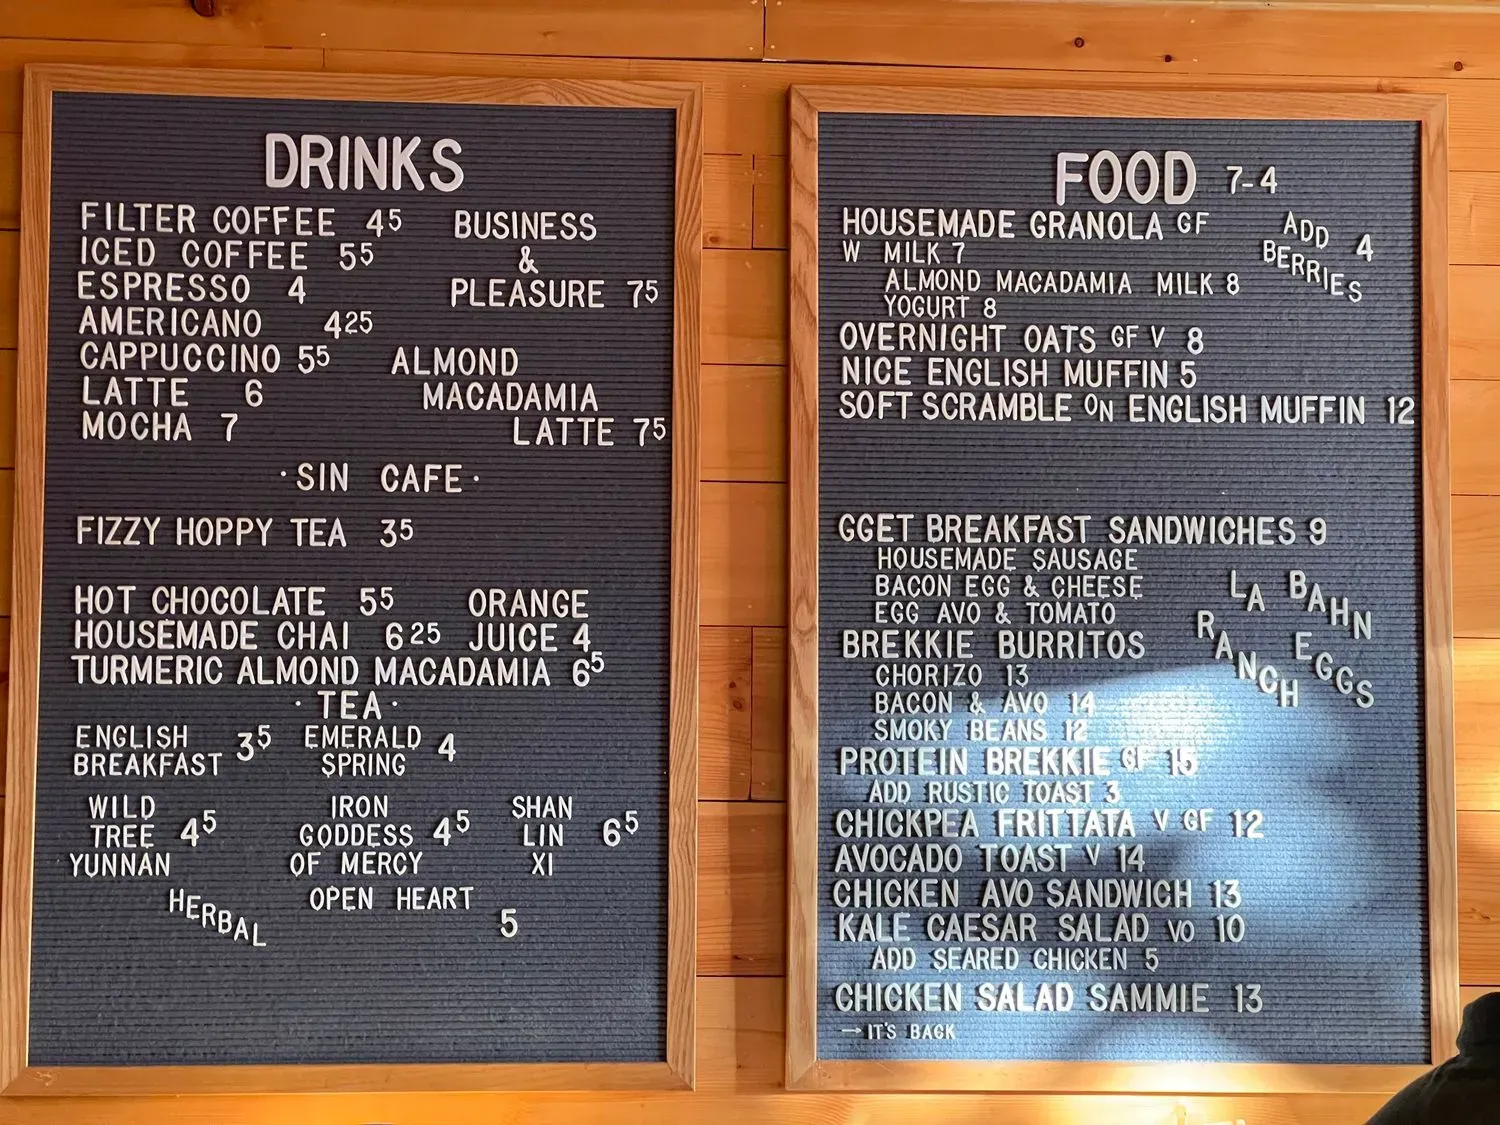 DRINKS
FILTER COFFEE 45
ICED COFFEE 55
ESPRESSO 4
AMERICANO 425
CAPPUCCINO 55
LATTE 6
MOCHA 7
BUSINESS
&
PLEASURE 75
ALMOND
MACADAMIA
LATTE 75
·SIN CAFE·
FIZZY HOPPY TEA 35
HOT CHOCOLATE 55
HOUSEMADE CHAI 625
ORANGE
JUICE 4
TURMERIC ALMOND MACADAMIA 65
·TEA·
ENGLISH
BREAKFAST 35
EMERALD
SPRING 4
WILD
TREE 45
YUNNAN
IRON
GODDESS 45
OF MERCY
SHAN
LIN 65
XI
HERBAL
OPEN HEART
5
FOOD 7-4
HOUSEMADE GRANOLA GF
W MILK 7
ALMOND MACADAMIA MILK 8
YOGURT 8
ADD
BERRIES 4
OVERNIGHT OATS GF V 8
NICE ENGLISH MUFFIN 5
SOFT SCRAMBLE ON ENGLISH MUFFIN 12
GGET BREAKFAST SANDWICHES 9
HOUSEMADE SAUSAGE
BACON EGG & CHEESE
EGG AVO & TOMATO
LA BAHN
RANCH EGGS
BREKKIE BURRITOS
CHORIZO 13
BACON & AVO 14
SMOKY BEANS 12
PROTEIN BREKKIE GF 15
ADD RUSTIC TOAST 3
CHICKPEA FRITTATA V GF 12
AVOCADO TOAST V 14
CHICKEN AVO SANDWICH 13
KALE CAESAR SALAD VO 10
ADD SEARED CHICKEN 5
CHICKEN SALAD SAMMIE 13
→IT'S BACK